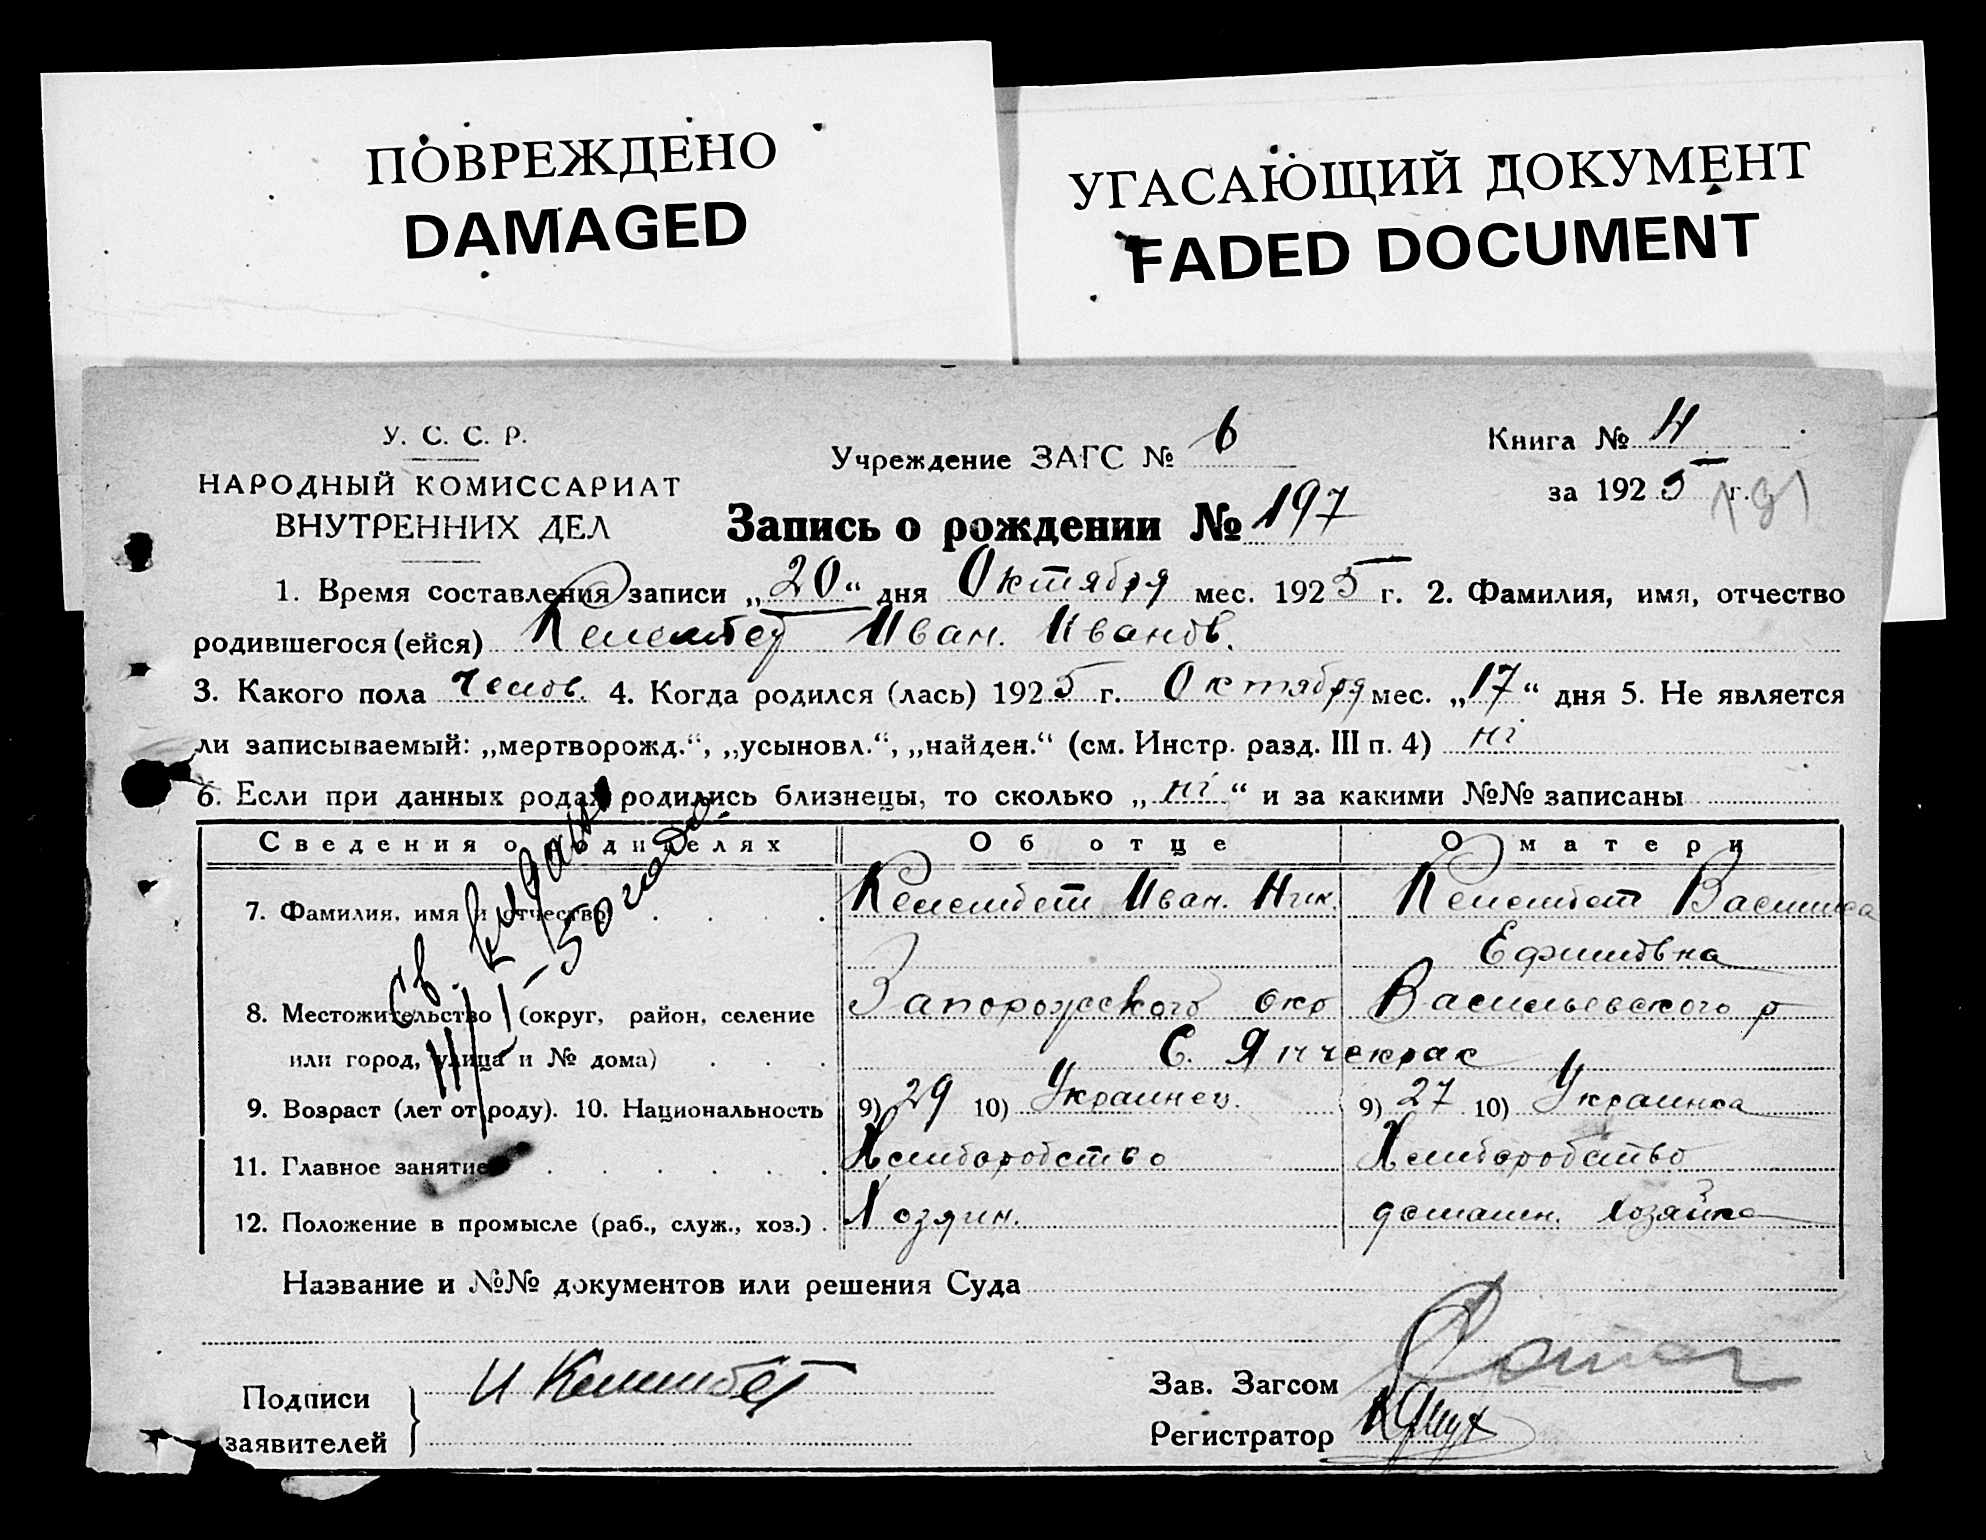 ПОВРЕЖДЕНО
DAMAGED
УГАСАЮЩИЙ ДОКУМЕНТ
FADED DOCUMENT
У. С. С. Р.
НАРОДНЫЙ КОМИССАРИАТ
ВНУТРЕННИХ ДЕЛ
Учреждение ЗАГС № 6
Книга №
за 1925 г.
Запись о рождении № 197
1. Время составления записи „20“ дня Октября мес. 1925 г. 2. Фамилия, имя, отчество
родившегося (ейся) Келембет Иван. Иванов.
3. Какого пола Челов. 4. Когда родился (лась) 1925 г. Октября мес. „17“ дня 5. Не является
ли записываемый: „мертворожд.“, „усыновл.“, „найден.“ (см. Инстр. разд. III п. 4) ні
6. Если при данных родах родились близнецы, то сколько „ні“ и за какими №№ записаны
Сведения о родителях Об отце О матери
7. Фамилия, имя и отчество Келембет Иван. Ник. Келембет Василиса
Ефимовна
8. Местожительство (округ, район, селение Запорожского окр Васильевского р
или город, улица и № дома) С. Янчекрак
9. Возраст (лет от роду). 10. Национальность 9) 29 10) Украинец. 9) 27 10) Украинка
11. Главное занятие Хлиборобство Хлиборобство
12. Положение в промысле (раб., служ., хоз.) Хозяин. домашн. хозяйка
Св. выдано
50 года.
Название и №№ документов или решения Суда
Подписи
заявителей
И Келембет
Зав. Загсом
Регистратор